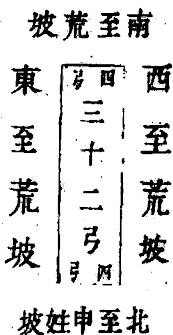 南至荒坡
西至荒坡
四弓
三十二弓
四弓
東至荒坡
北至申姓坡